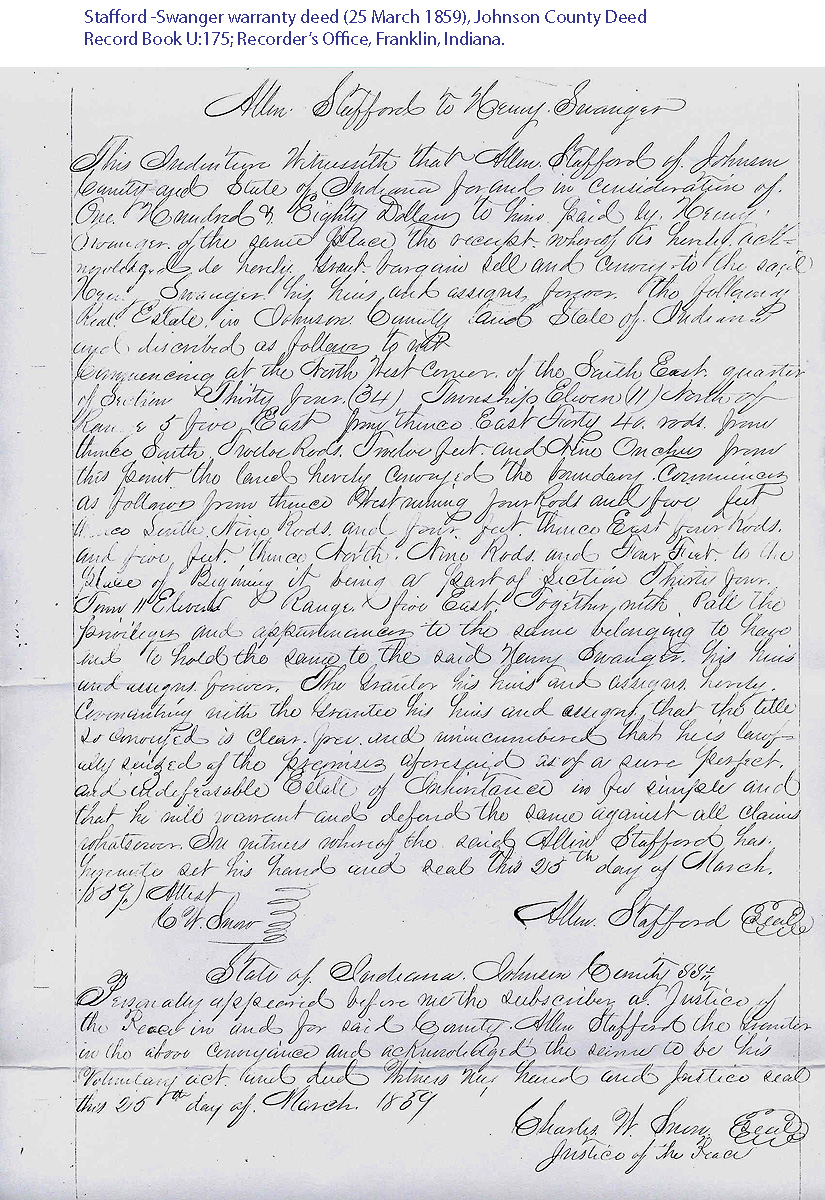 Stafford -Swanger warranty deed (25 March 1859), Johnson County Deed
Record Book U:175; Recorder's Office, Franklin, Indiana.
Allen Stafford to Henry Swanger
This Indenture Witnesseth that Allen Stafford of Johnson
County and State of Indiana for and in consideration of
One Hundred & Eighty Dollars to him paid by Henry
Swanger of the same place the receipt whereof is hereby ack-
nowledged do hereby Grant bargain sell and convey to the said
Henry Swanger his heirs and assigns forever the following
Real Estate in Johnson County and State of Indiana
and discribed as follows to wit
Commencing at the North West Corner of the South East quarter
of Section Thirty four (34) Township Eleven (11) North of
Range 5 five East from thence East Forty 40 rods from
thence South Twelve Rods Twelve feet and Nine Onches from
this point the land hereby conveyed the boundary Commences
as follows from thence West running four Rods and five feet
thence South Nine Rods and four feet thence East four Rods
and five feet thence North Nine Rods and Four Feet to the
Place of Begining it being a part of Section Thirty four
Town 11 Eleven Range five East Together with all the
priviliges and appurtenances to the same belonging to have
and to hold the same to the said Henry Swanger his heirs
and assigns forever. The Grantor his heirs and assigns hereby
Covenanting with the Grantee his heirs and assigns that the title
so conveyed is clear free and unincumbered that he is lawf-
ully seized of the premises aforesaid as of a sure perfect
and indefeasable Estate of Inheritance in fee simple and
that he will warrant and defend the same against all claims
whatsoever. In witness whereof the said Allen Stafford has
hereunto set his hand and seal this 25th day of March
1859) Attest
C W. Snow
Allen Stafford Seal
State of Indiana Johnson County SS
Personally appeared before me the subscriber a Justice of
the Peace in and for said County Allen Stafford the Grantor
in the above conveyance and acknowledged the same to be his
Voluntary act and deed Witness my hand and Justice seal
this 25th day of March 1859
Charles W. Snow Seal
Justice of the Peace